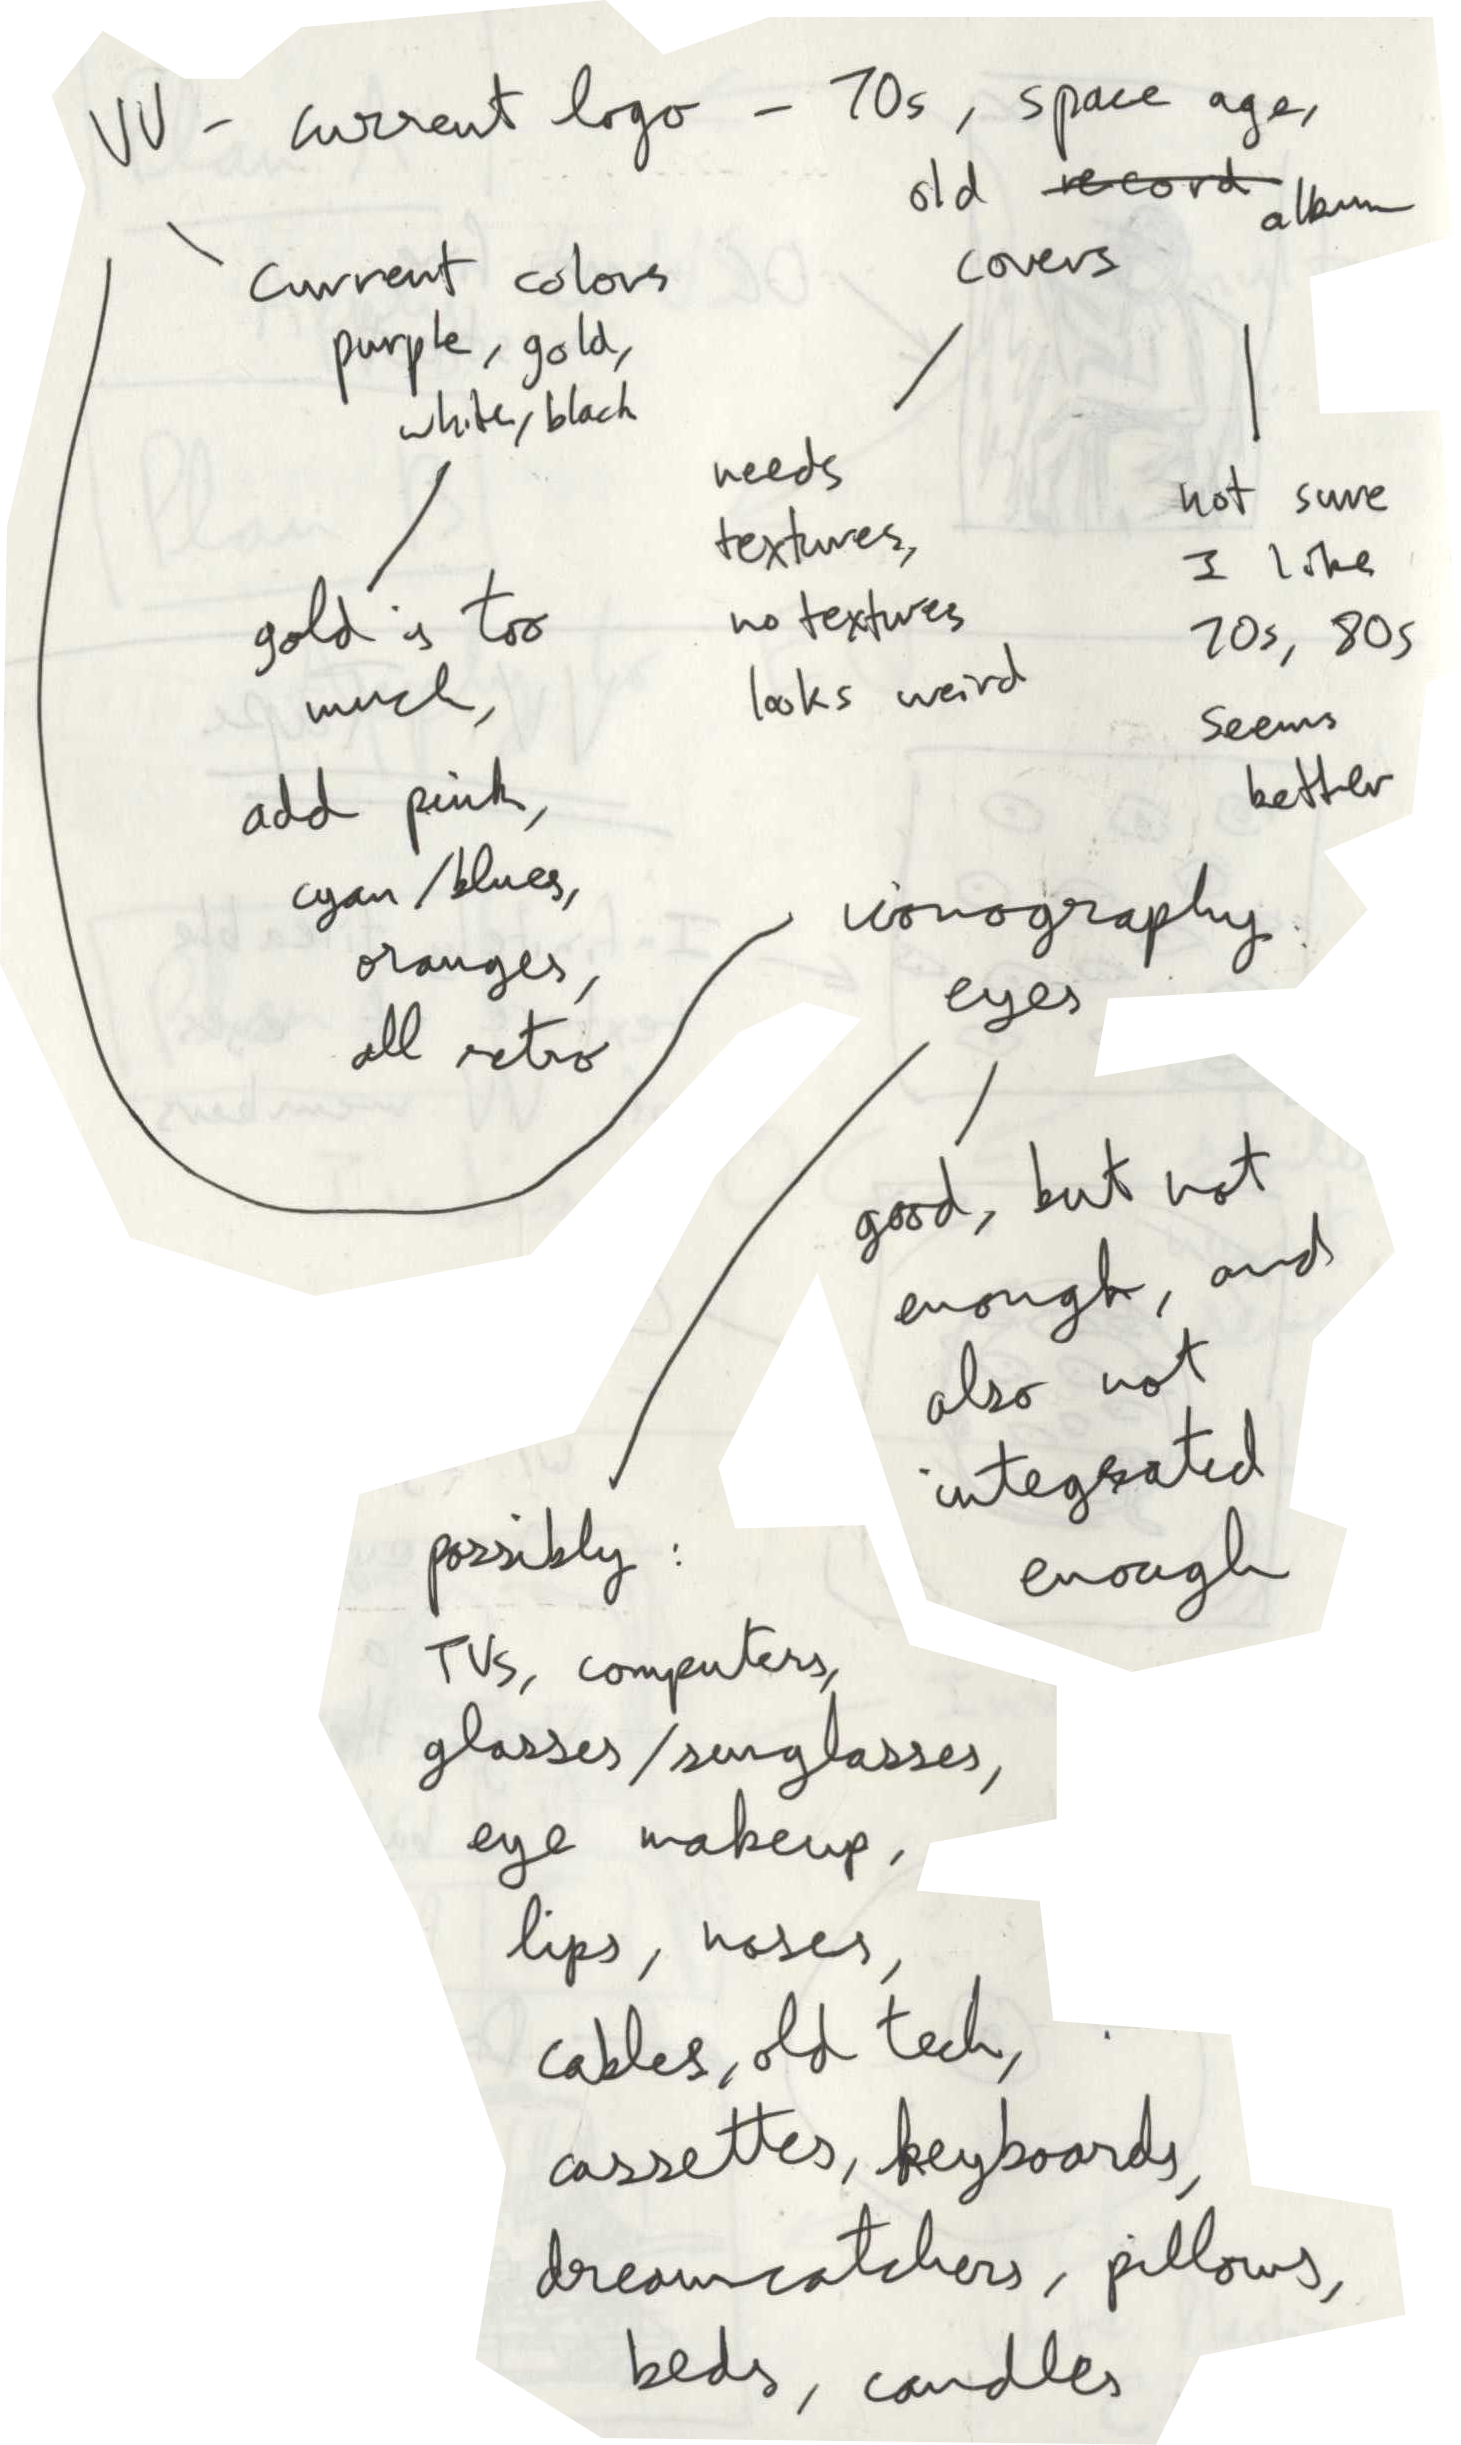 VV - current logo - 70s, space age,
old record album
covers
current colors
purple, gold,
white, black
gold is too
much,
add pink,
cyan/blues,
oranges,
all retro
needs
textures,
no textures
looks weird
not sure
I like
70s, 80s
seems
better
iconography
eyes
good, but not
enough, and
also not
integrated
enough
possibly:
TVs, computers,
glasses/sunglasses,
eye makeup,
lips, noses,
cables, old tech,
cassettes, keyboards,
dreamcatchers, pillows,
beds, candles